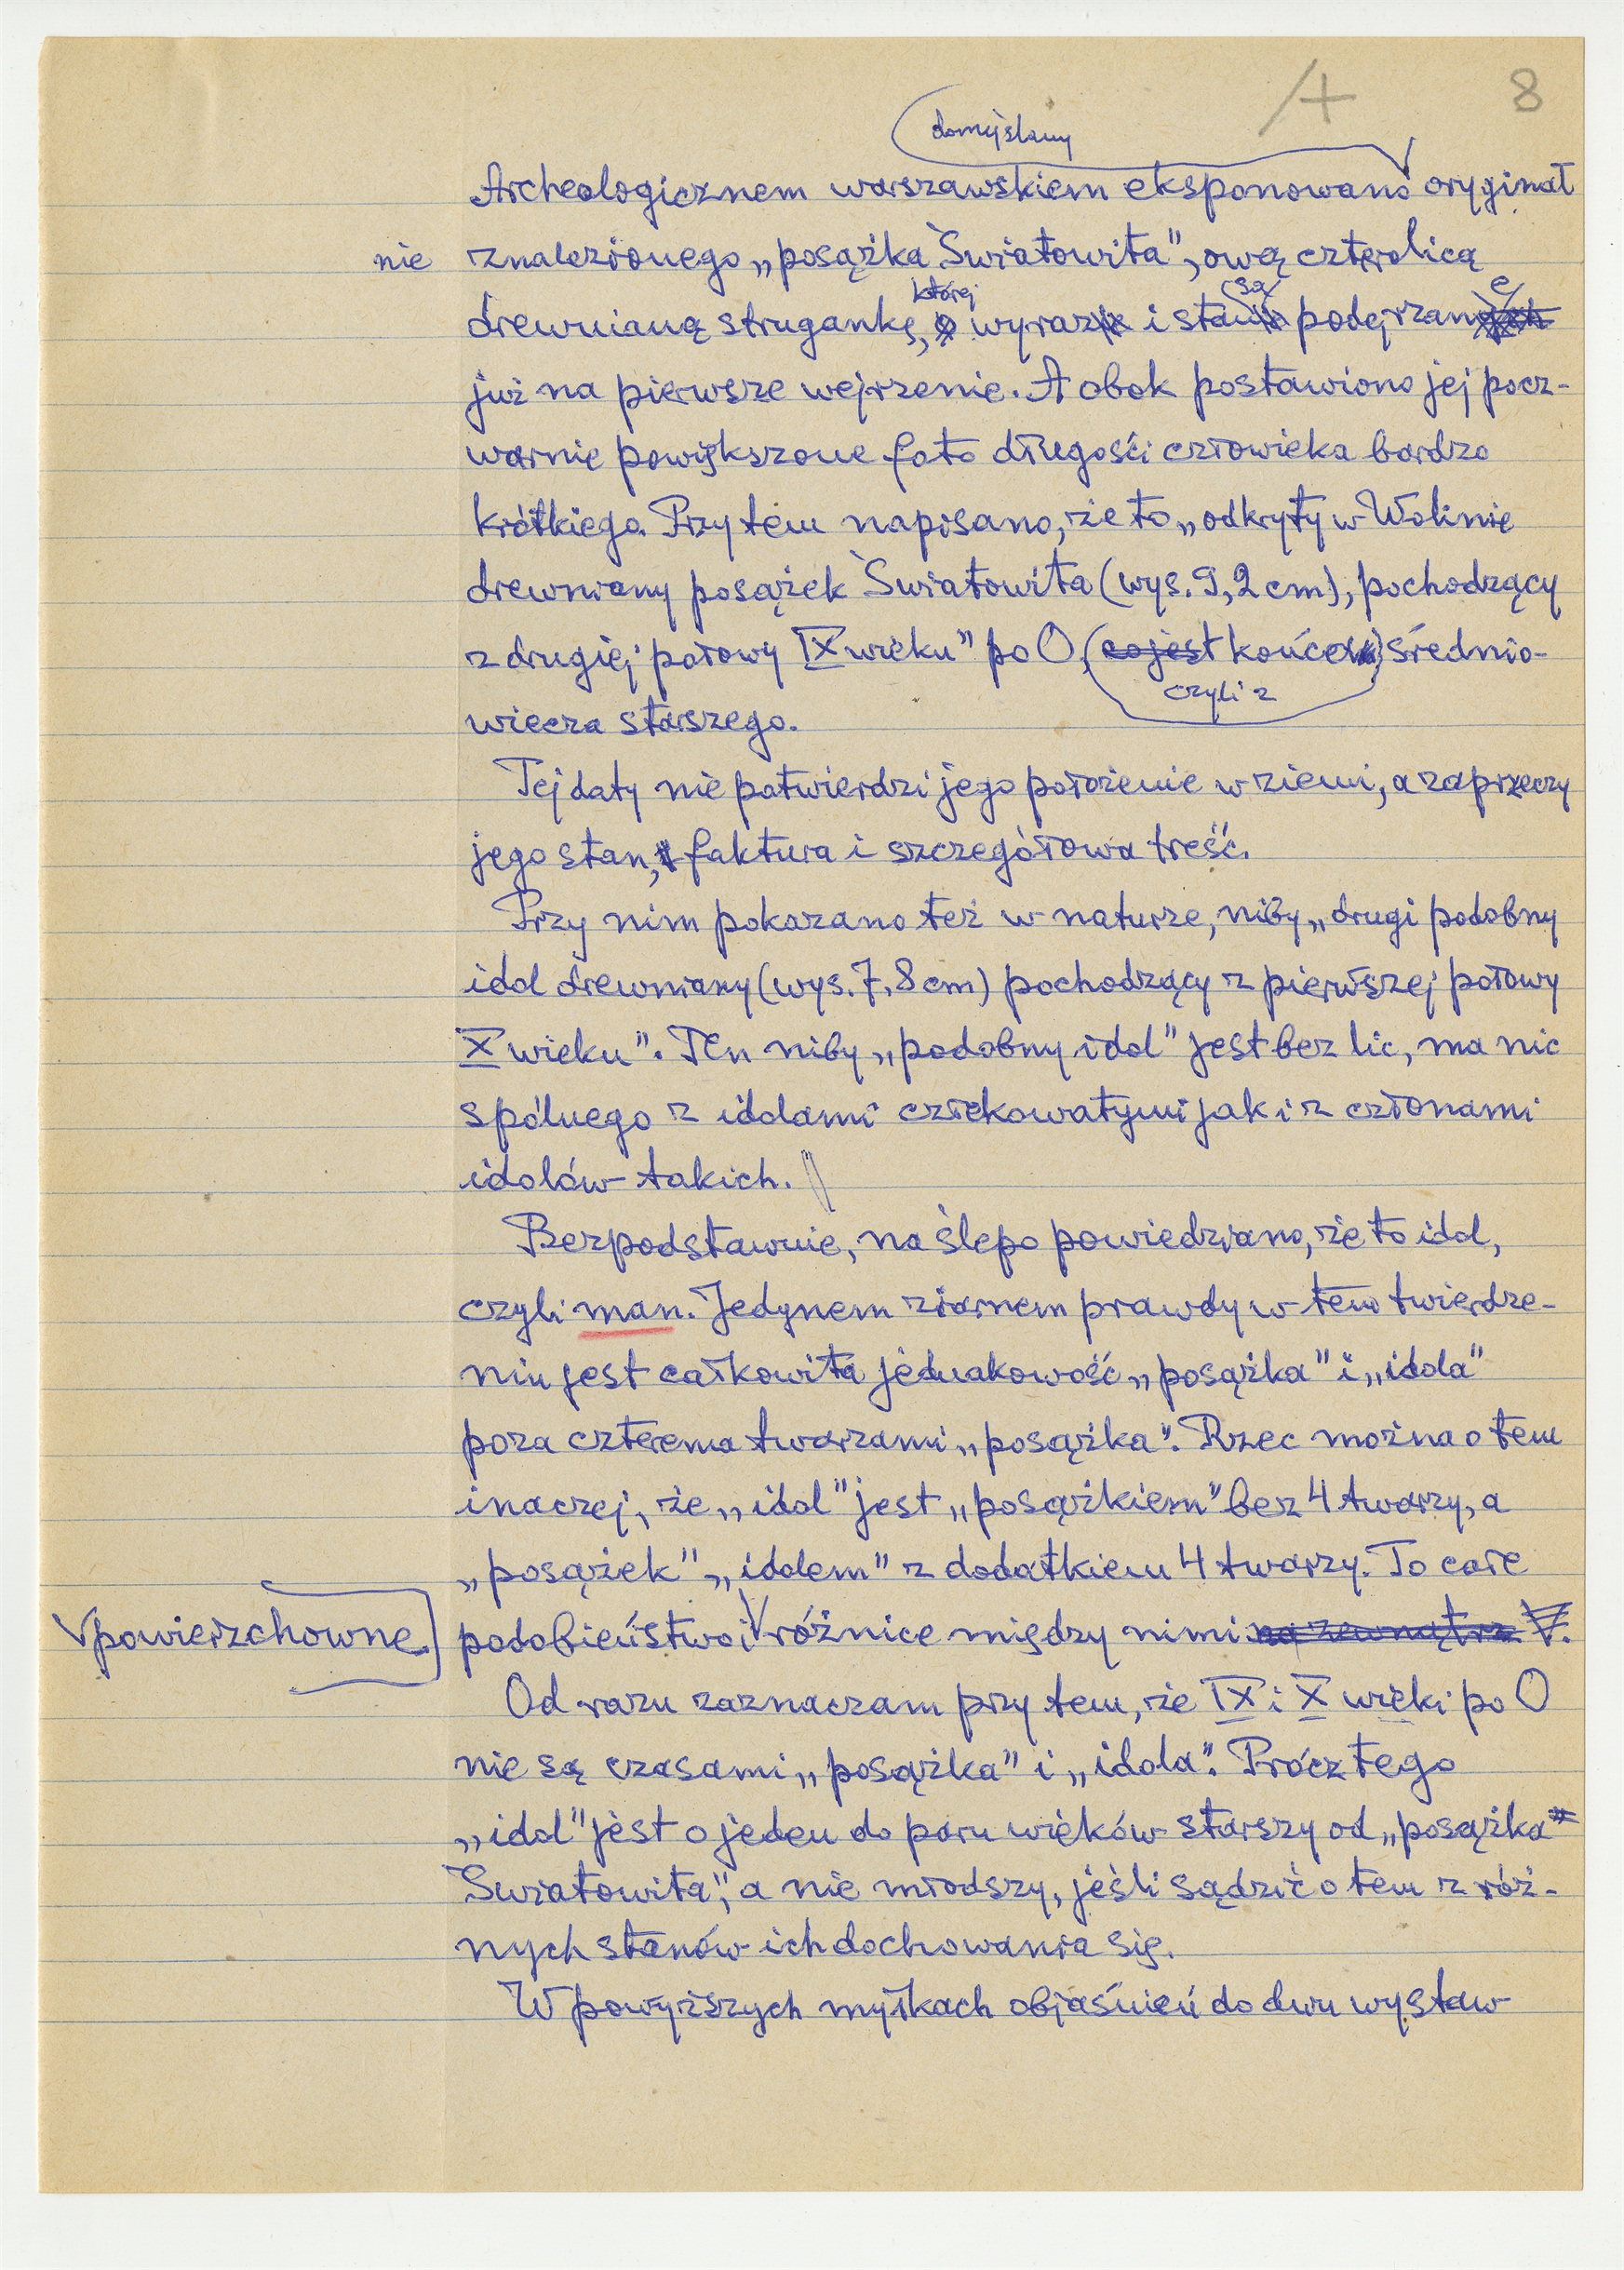 8
domyślany
Archeologicznem warszawskiem eksponowano oryginał
nie znalezionego „posążka Światowita”, ową czterolicą
której są e
drewnianą strugankę, wyraz i stan podejrzan
już na pierwsze wejrzenie. A obok postawiono jej pocz-
warnie powiększone foto długości człowieka bardzo
krótkiego. Przytem napisano, że to „odkryty w Wolinie
drewniany posążek Światowita (wys. 9,2 cm), pochodzący
z drugiej połowy IX wieku” po O, (co jest końcem) średnio-
czyli z
wiecza starszego.
Tej daty nie potwierdzi jego położenie w ziemi, a zaprzeczy
jego stan, faktura i szczegółowa treść.
Przy nim pokazano też w naturze, niby „drugi podobny
idol drewniany (wys. 7,8 cm) pochodzący z pierwszej połowy
X wieku”. Ten niby „podobny idol” jest bez lic, ma nic
spólnego z idolami człekowatymi jak i z członami
idolów takich.
Bezpodstawnie, na ślepo powiedziano, że to idol,
czyli man. Jedynem ziarnem prawdy w tem twierdze-
niu jest całkowita jednakowość „posążka” i „idola”
poza czterema twarzami „posążka”. Rzec można o tem
inaczej, że „idol” jest „posążkiem” bez 4 twarzy, a
„posążek” „idolem” z dodatkiem 4 twarzy. To całe
powierzchowne podobieństwo i różnice między nimi na zewnątrz.
Od razu zaznaczam przy tem, że IX i X wieki po O
nie są czasami „posążka” i „idola”. Prócz tego
„idol” jest o jeden do paru wieków starszy od „posążka
Światowita”, a nie młodszy, jeśli sądzić o tem z róż-
nych stanów ich dochowania się.
W powyższych myłkach objaśnień do dwu wystaw